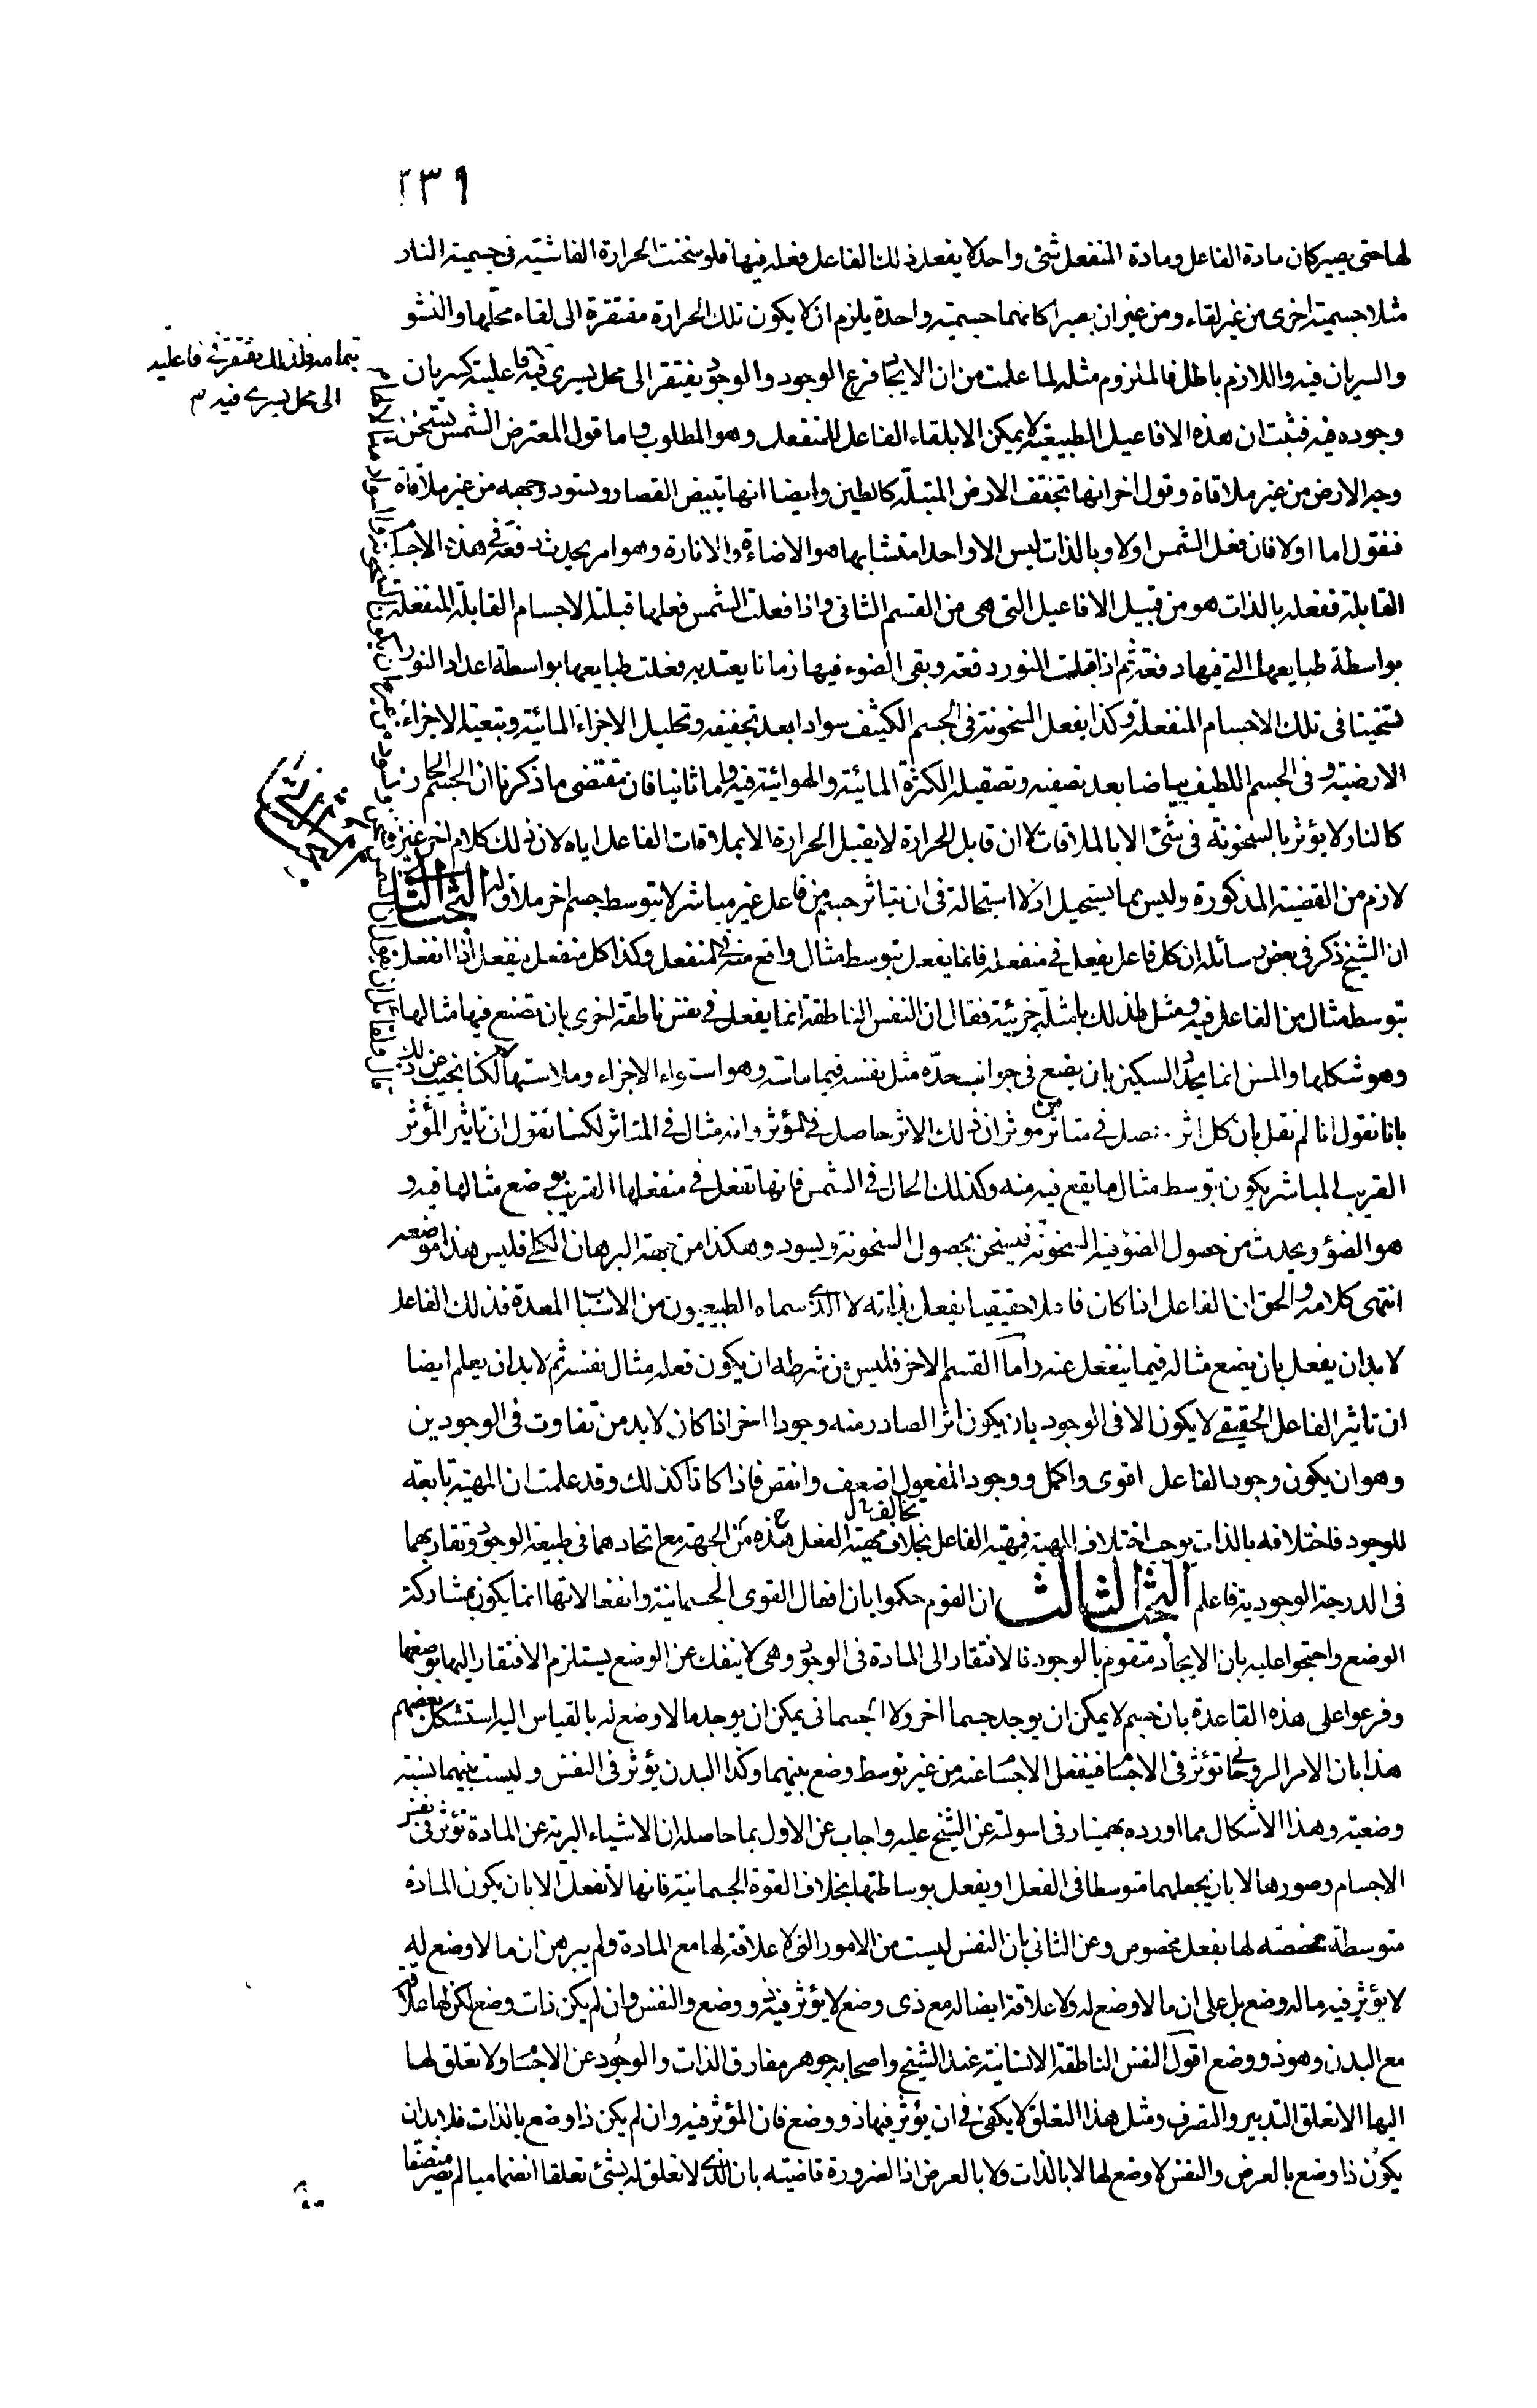 ٢٣٩
لها حتى يصير كان مادة الفاعل ومادة المنفعل شئ واحد لا يفعل ذلك الفاعل فعله فيها فلو سخنت الحرارة الفاشية فى جسمية النار
مثلا جسمية اخرى من غير لقاء ومن غير ان يصيرا كانهما جسمية واحدة يلزم ان لا يكون تلك الحرارة مفتقرة الى لقاء محلها والنشو
والسريان فيه واللازم باطل فالملزوم مثله لما علمت من ان الايجاد فرع الوجود والوجود يفتقر الى محل يسرى فيه فاعليته كسريان
وجوده فيه فثبت ان هذه الافاعيل الطبيعية لا يمكن الا بلقاء الفاعل للمنفعل وهو المطلوب واما قول المعترض الشمس يسخن
وجه الارض من غير ملاقاة وقول اخر انها تجفف الارض المبتلة كالطين وايضا انها تبيض القصار ويسود وجهه من غير ملاقاة
فنقول اما اولا فان فعل الشمس اولا وبالذات ليس الا واحدا متشابها هو الاضاءة والانارة وهو امر يحدث دفعة فى هذه الاجسام
القابلة ففعله بالذات هو من قبيل الافاعيل التى هى من القسم الثانى واذا فعلت الشمس فعلها قبلته الاجسام القابلة المنفعلة
بواسطة طبايعها التى فيها دفعة ثم اذا قبلت النور دفعة وبقى الضوء فيها زمانا يعتد به فعلت طبايعها بواسطة اعداد النور
تسخينا فى تلك الاجسام المنفعلة وكذا يفعل السخونة فى الجسم الكثيف سوادا بعد تجفيفه وتحليل الاجزاء المائية وتبقية الاجزاء
الارضية وفى الجسم اللطيف بياضا بعد تصفيه وتصقيله لكثرة المائية والهوائية فيه واما ثانيا فان مقتضى ما ذكرنا ان الجسم الحار
كالنار لا يؤثر بالسخونة فى شئ الا بالملاقات لا ان قابل الحرارة لا يقبل الحرارة الا بملاقات الفاعل اياه لان ذلك كلام اخر غير
لازم من القضية المذكورة وليس مما يستحيل اذ لا استحالة فى ان يتاثر جسم من فاعل غير مباشر لا بتوسط جسم اخر ملاق له البحث الثانى
ان الشيخ ذكر فى بعض رسائله ان كل فاعل يفعل فى منفعله فانما يفعل بتوسط مثال واقع منه فى المنفعل وكذا كل منفعل ينفعل اذا انفعل
بتوسط مثال من الفاعل فيه ومثل لذلك بامثلة جزئية فقال ان النفس الناطقة انما يفعل فى نفس ناطقة اخرى بان تصنع فيها مثالها
وهو شكلها والمسن انما يحد السكين بان يضع فى جوانب حده مثل نفسه فيما ماسه وهو استواء الاجزاء وملاستها لكنا نجيب عن ذلك
بانا نقول انا لم نقل بان كل اثر حصل فى متاثر من موثر ان ذلك الاثر حاصل فى المؤثر وانه مثال فى المتاثر لكنا نقول ان تاثير المؤثر
القريب المباشر يكون بتوسط مثال ما يقع فيه منه وكذلك الحال فى الشمس فانها تفعل فى منفعلها القريب بوضع مثالها فيه و
هو الضوء ويحدث من حصول الضوء فيه السخونة فيسخن بحصول السخونة ويسود وهكذا من جهة البرهان الكلى فليس هذا موضعه
انتهى كلامه والحق ان الفاعل اذا كان فاعلا حقيقيا يفعل بذاته لا الذى سماه الطبيعيون من الاسباب المعدة فذلك الفاعل
لا بد ان يفعل بان يضع مثاله فيما ينفعل عنه واما القسم الاخر فليس من شرطه ان يكون فعله مثال نفسه ثم لا بد ان يعلم ايضا
ان تاثير الفاعل الحقيقى لا يكون الا فى الوجود بان يكون اثر الصادر منه وجودا اخر اذا كان لا بد من تفاوت فى الوجودين
وهو ان يكون وجود الفاعل اقوى واكمل ووجود المفعول اضعف وانقص فاذا كانا كذلك وقد علمت ان المهية تابعة
للوجود فاختلافه بالذات يوجب اختلاف المهية فمهية الفاعل بخلاف مهية الفعل من هذه الجهة مع اتحادهما فى طبيعة الوجود وتقاربهما
فى الدرجة الوجودية فاعلم البحث الثالث ان القوم حكموا بان افعال القوى الجسمانية وانفعالاتها انما يكون بمشاركة
الوضع واحتجوا عليه بان الايجاد متقوم بالوجود فالافتقار الى المادة فى الوجود وهى لا ينفك عن الوضع يستلزم الافتقار اليها بوضعها
وفرعوا على هذه القاعدة بان جسم لا يمكن ان يوجد جسما اخر ولا الجسمانى يمكن ان يوجد ما لا وضع له بالقياس اليه استشكل بعضهم
هذا بان الامر الروحانى تؤثر فى الاجسام فينفعل الاجسام عنه من غير توسط وضع بينهما وكذا البدن يؤثر فى النفس وليست بينهما نسبة
وضعية وهذا الاشكال مما اورده بهمنيار فى اسولته عن الشيخ عليه واجاب عن الاول بما حاصله ان الاشياء البرية عن المادة تؤثر فى نفس
الاجسام وصورها لا بان يجعلهما متوسطا فى الفعل او يفعل بوساطتها بخلاف القوة الجسمانية فانها لا تفعل الا بان يكون المادة
متوسطة مخصصة لها بفعل مخصوص وعن الثانى بان النفس ليست من الامور التى لا علاقة لها مع المادة ولم يبرهن ان ما لا وضع له
لا يؤثر فيه ما له وضع بل على ان ما لا وضع له ولا علاقة ايضا له مع ذى وضع لا يؤثر فيه ذو وضع والنفس وان لم يكن ذات وضع لكن لها علاقة
مع البدن وهو ذو وضع اقول النفس الناطقة الانسانية عند الشيخ واصحابه جوهر مفارق الذات والوجود عن الاجسام ولا تعلق لها
اليها الا تعلق التدبير والتصرف ومثل هذا التعلق لا يكفى فى ان يؤثر فيها ذو وضع فان المؤثر فيه وان لم يكن ذا وضع بالذات فلا بد ان
يكون ذا وضع بالعرض والنفس لا وضع لها لا بالذات ولا بالعرض اذ الضرورة قاضية بان الذى لا تعلق له بشئ تعلقا انضماميا لم يصر متصفا
الى محل يسرى فيه